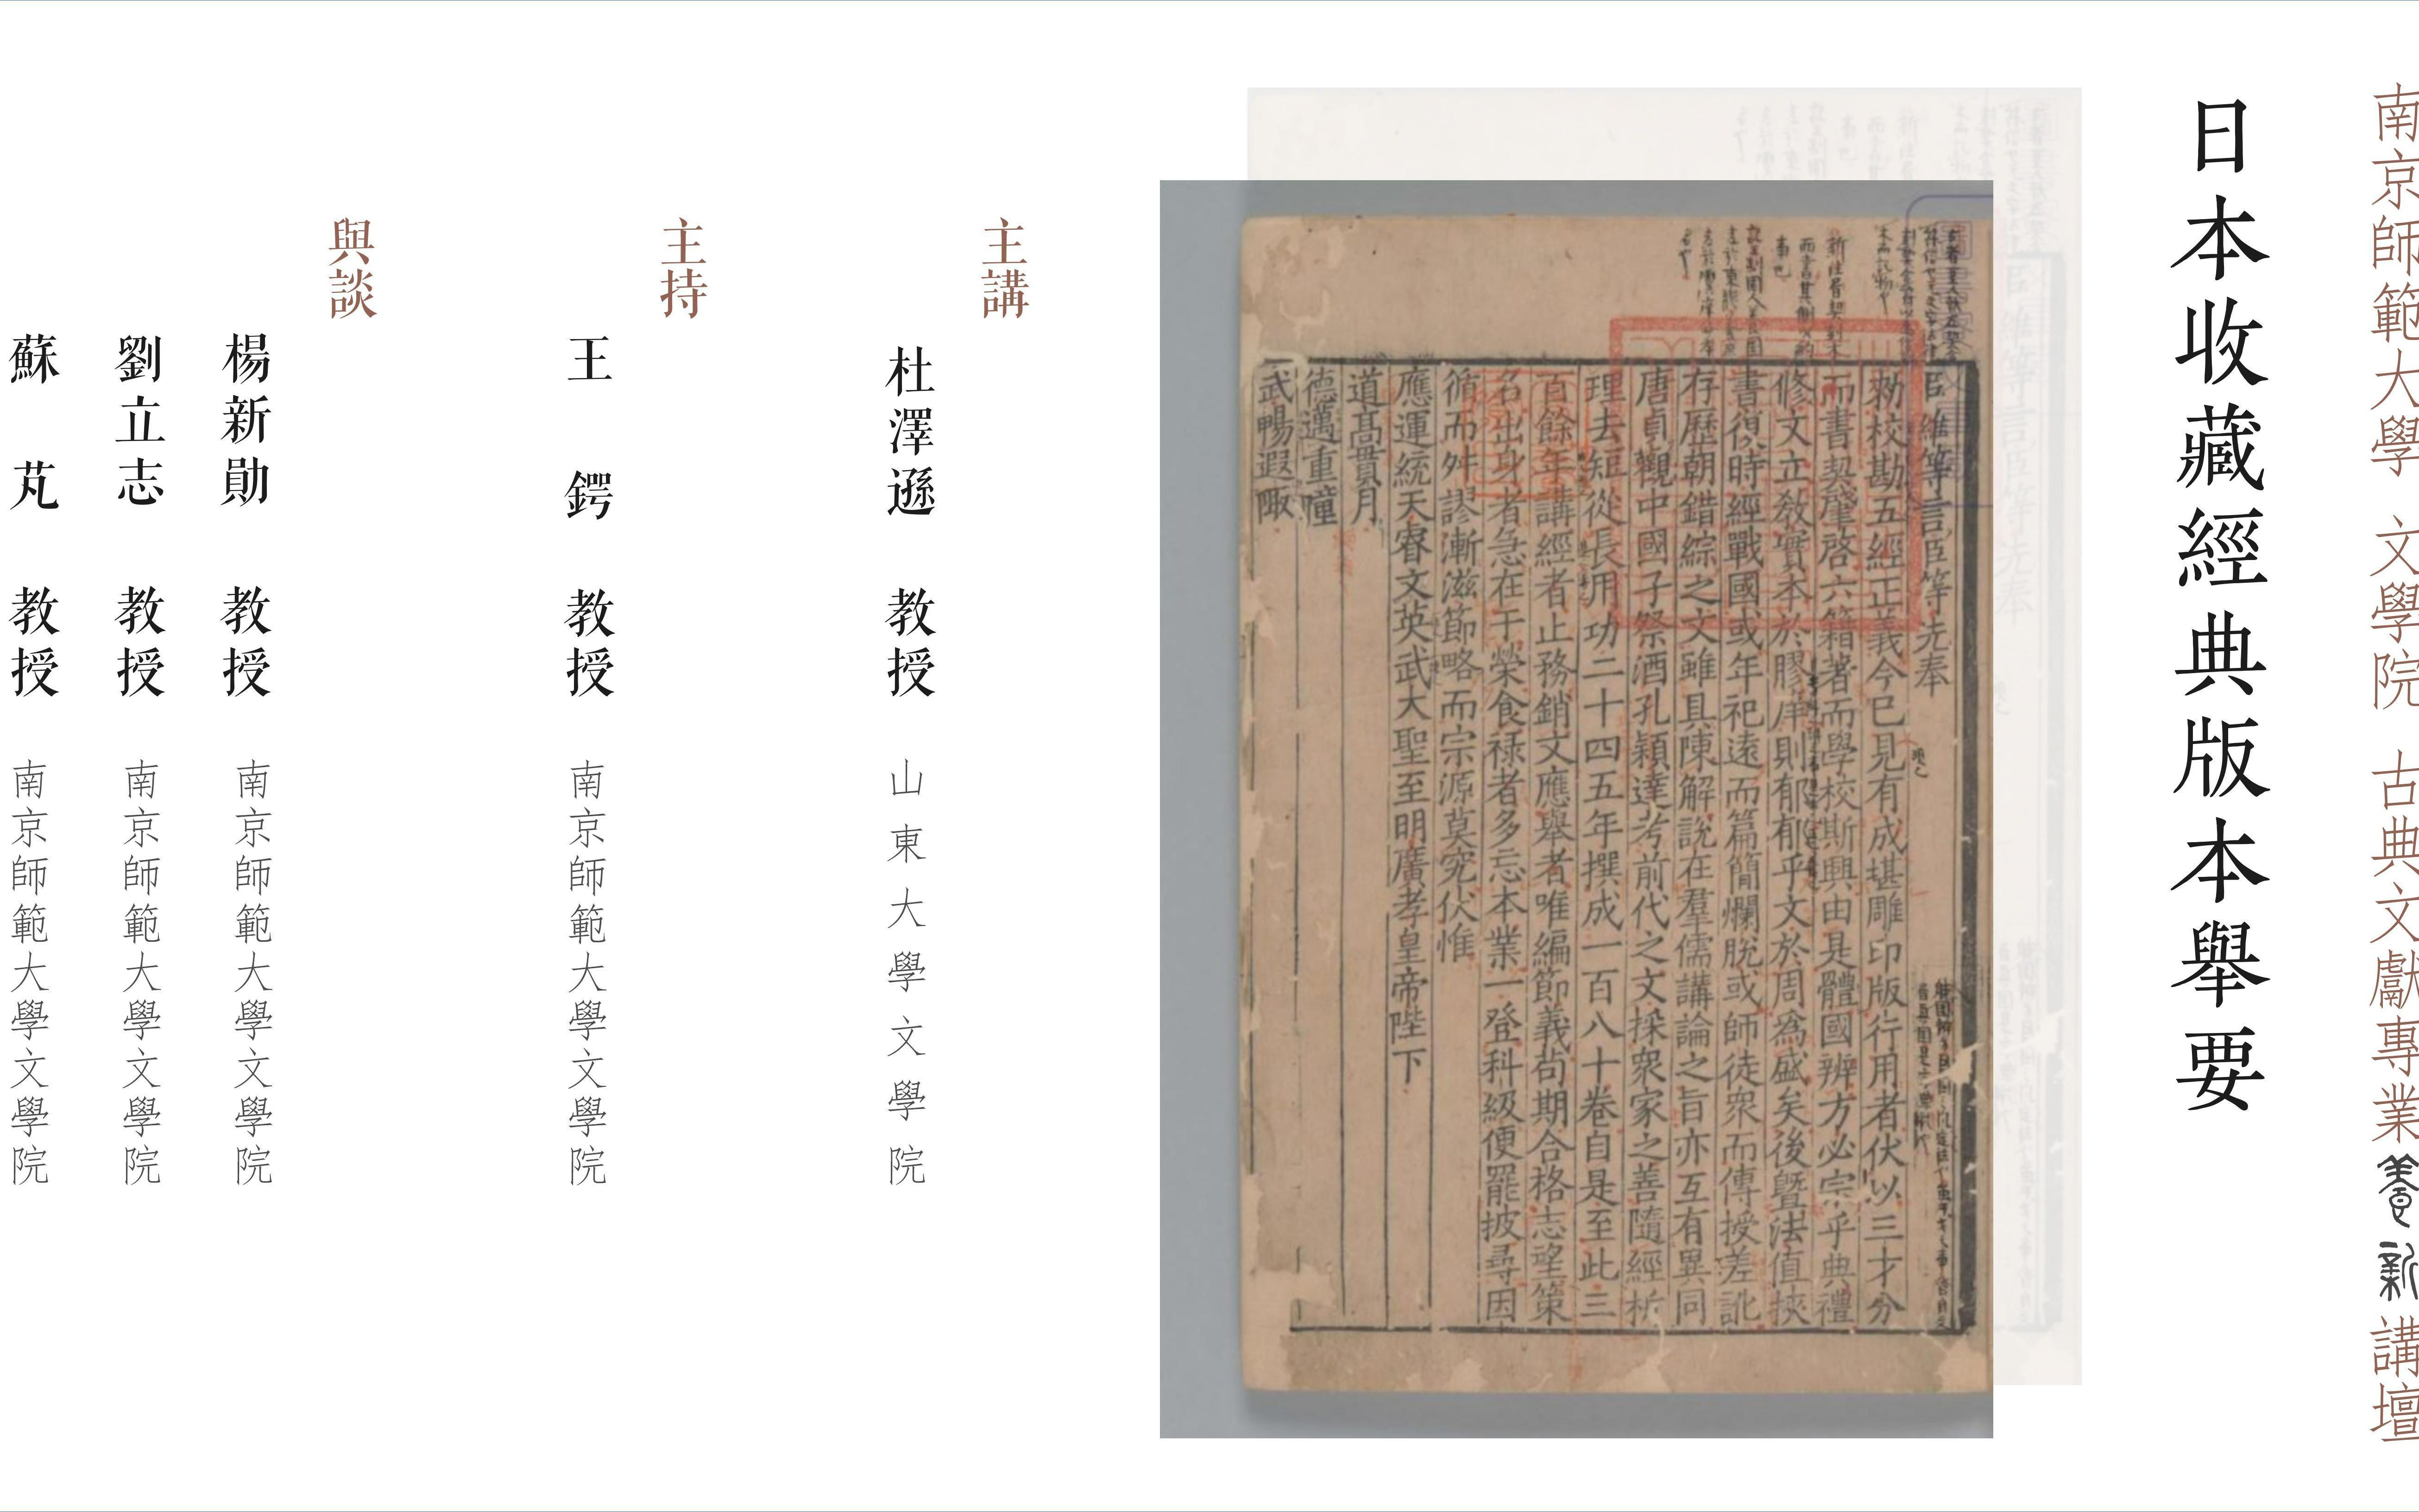 南京師範大學 文學院 古典文獻專業養新講壇
日本收藏經典版本舉要
臣維等言臣等先奉
勑校勘五經正義今已見有成堪雕印版行用者伏以三才分
而書契肇啓六籍著而學校斯興由是體國辨方必宗乎典禮
修文立教實本於膠庠則郁郁乎文於周爲盛矣後暨法值挾
書俄時經戰國或年祀遠而篇簡爛脫或師徒衆而傳授差訛
存歷朝錯綜之文雖具陳解說在羣儒講論之旨亦互有異同
唐貞觀中國子祭酒孔穎達考前代之文採衆家之善隨經析
理去短從長用功二十四五年撰成一百八十卷自是至此三
百餘年講經者止務銷文應舉者唯編節義苟期合格志望策
名出身者急在干榮食祿者多忘本業一登科級便罷披尋因
循而舛謬漸滋節略而宗源莫究伏惟
應運統天睿文英武大聖至明廣孝皇帝陛下
道高貫月
德邁重瞳
武暢遐陬
主講
杜澤遜 教授 山東大學文學院
主持
王鍔 教授 南京師範大學文學院
與談
楊新勛 教授 南京師範大學文學院
劉立志 教授 南京師範大學文學院
蘇芃 教授 南京師範大學文學院